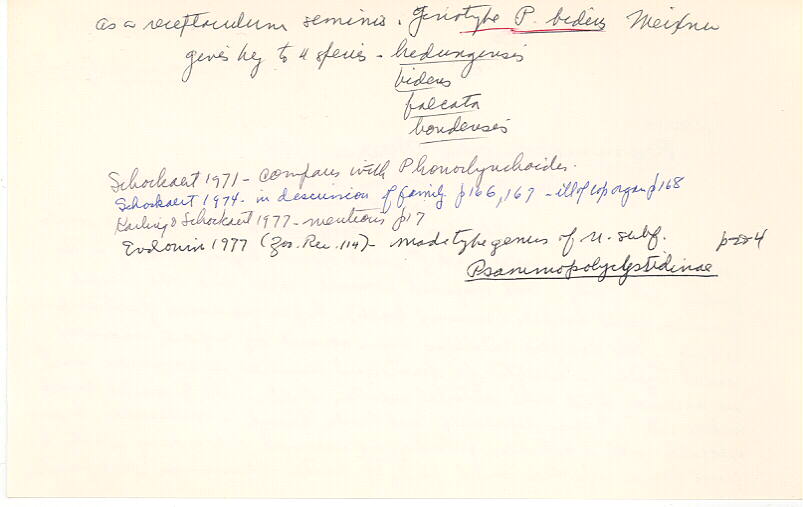 as a receptaculum seminis. Genotype P. bidens Meixner
gives key to 4 species - hedungensis
bidens
falcata
bondensis
Schockaert 1971 - compares with Phonorhynchoides.
Schockaert 1974 - in descussion of family p 166, 167 - ill of cop organ p 168
Karling & Schockaert 1977 - mentions p 17
Evdonin 1977 (Zoo. Rec. 114) - made type genus of n. subf.
Psammopolycystidinae